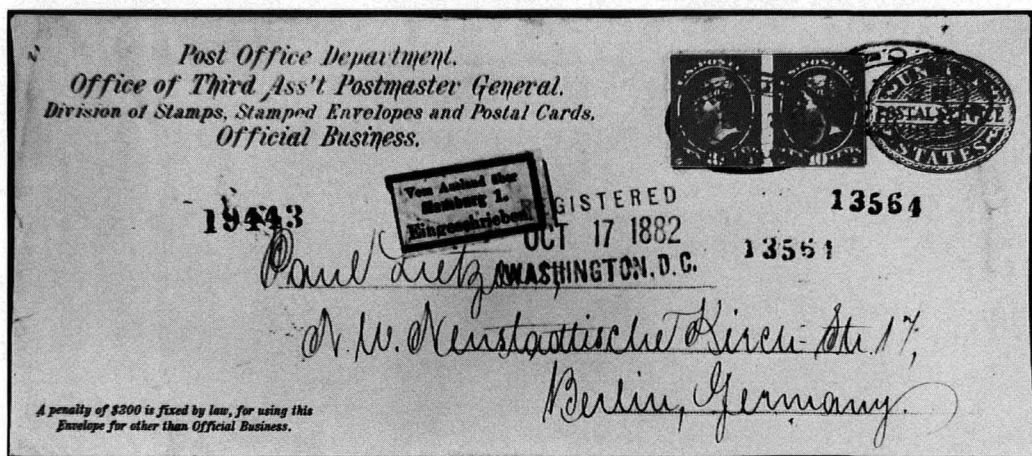 Post Office Department.
Office of Third Ass't Postmaster General.
Division of Stamps, Stamped Envelopes and Postal Cards.
Official Business.
U.S. POSTAGE
U.S. POSTAGE
10
POSTAL SERVICE
STATES
Vom Ausland über
Hamburg 1.
Eingeschrieben
19443
REGISTERED
OCT 17 1882
WASHINGTON, D.C.
13564
13564
Paul
N. W. Neustadtische Kirch-Str. 17,
Berlin, Germany.
A penalty of $300 is fixed by law, for using this
Envelope for other than Official Business.